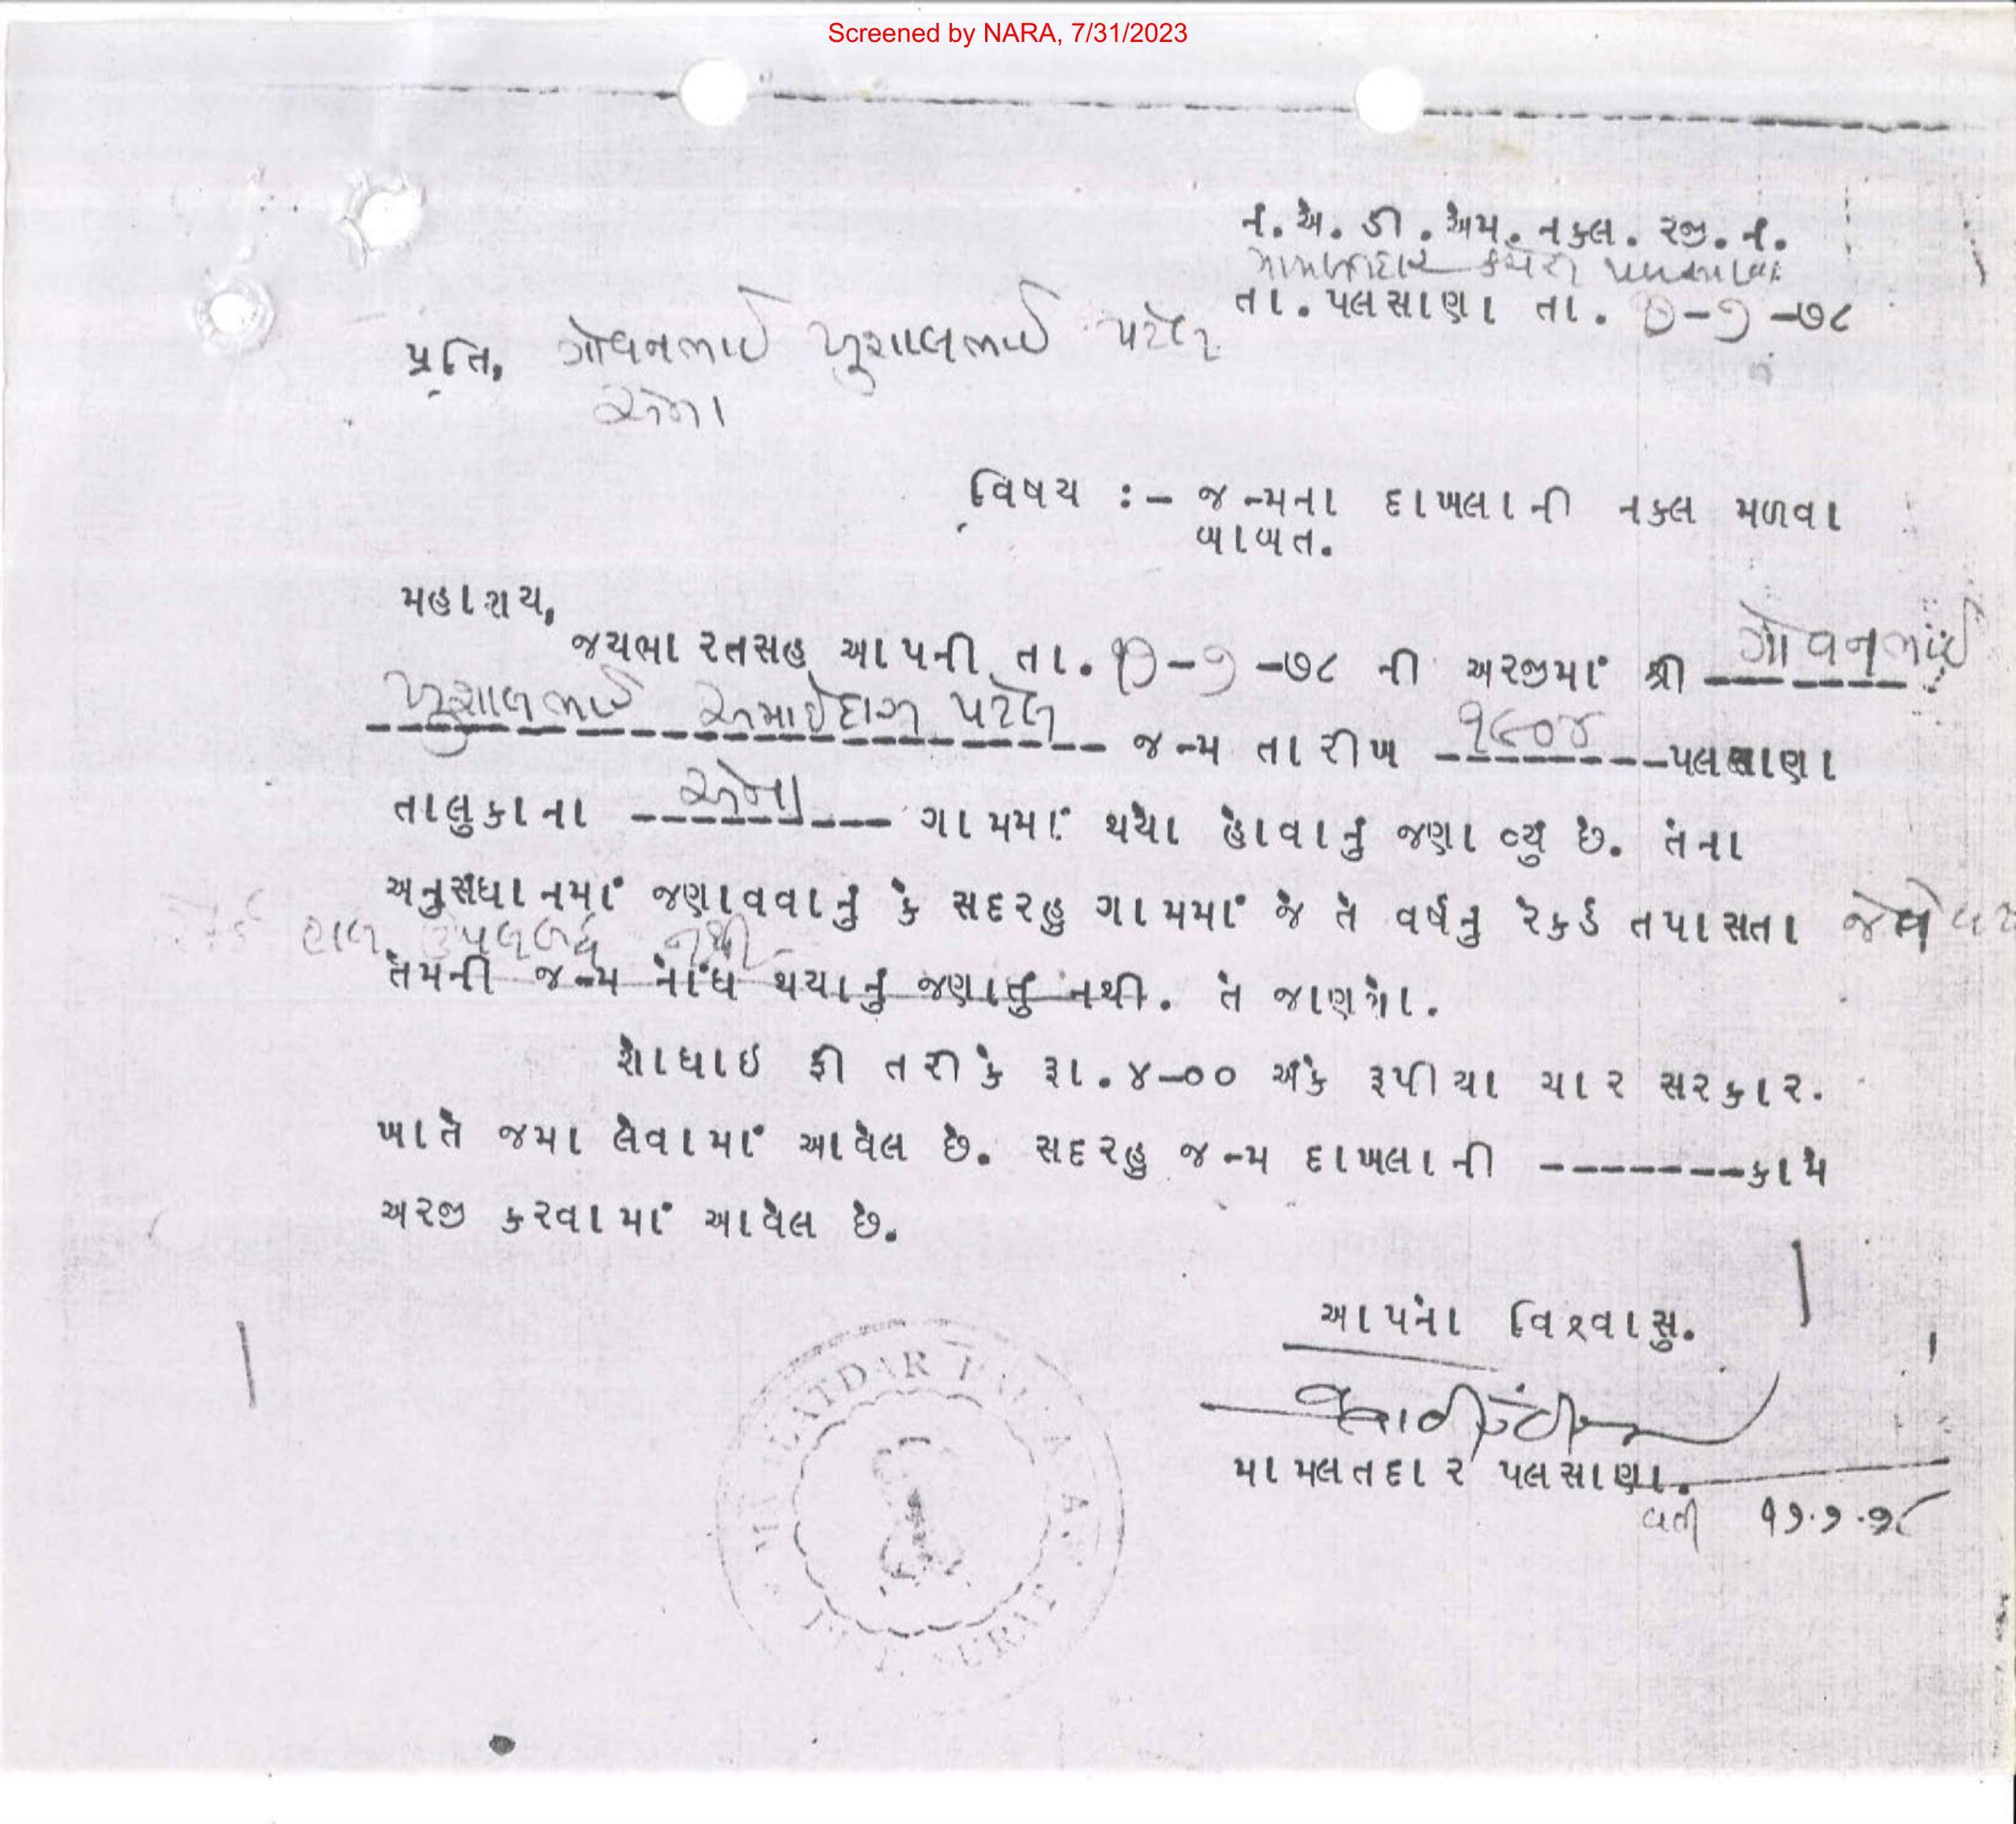 Screened by NARA, 7/31/2023
નં.એ. ડી .એમ. નકલ. રજી. નં.
મામલતદાર કચેરી પલસાણા
તા. પલસાણા તા. -૭ -૭૮
પ્રતિ, ગોવનભાઈ ખુશાલભાઈ પટેલ
એના
વિષય :- જન્મના દાખલાની નકલ મળવા
બાબત.
મહાશય,
જયભારતસહ આપની તા. -૭ -૭૮ ની અરજીમાં શ્રી ગોવનભાઈ
ખુશાલભાઈ પટેલ જન્મ તારીખ ૧૯૦૪ પલસાણા
તાલુકાના એના ગામમાં થયો હોવાનું જણાવ્યું છે. તેના
અનુસંધાનમાં જણાવવાનું કે સદરહુ ગામમાં જે તે વર્ષનુ રેકર્ડ તપાસતા
હાલ ઉપલબ્ધ નથી
તેમની જન્મ નોંધ થયાનું જણાતું નથી. તે જાણશો.
શોધાઇ ફી તરીકે રૂા.૪-૦૦ અંકે રૂપીયા ચાર સરકાર.
ખાતે જમા લેવામાં આવેલ છે. સદરહુ જન્મ દાખલાની -------કામે
અરજી કરવામાં આવેલ છે.
આપનો વિશ્વાસુ.
મામલતદાર પલસાણા.
વતી ૧૭.૭.૭૮